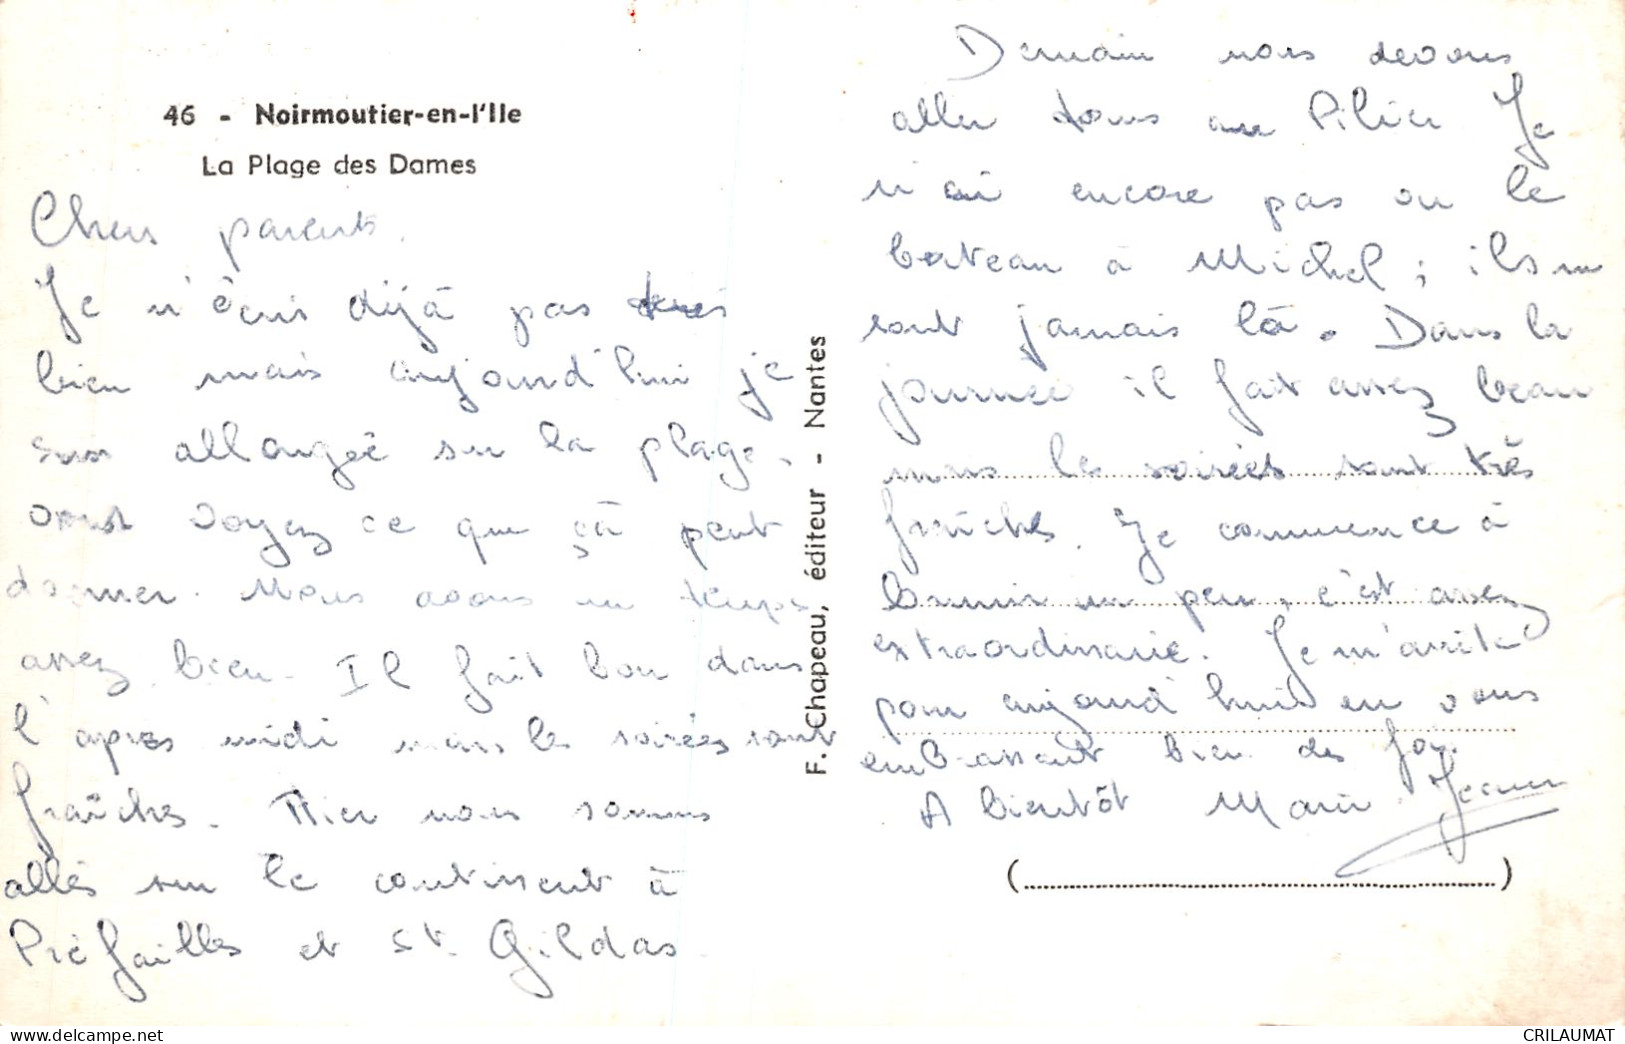 46 - Noirmoutier-en-l'Ile
La Plage des Dames
Chers parents.
Je n'écris déjà pas très
bien mais aujourd'hui je
suis allongée sur la plage.
vous voyez ce que çà peut
donner. Nous avons un temps
assez bien. Il fait bon dans
l'après midi mais les soirées sont
fraîches. Hier nous sommes
allés sur le continent à
Préfailles et St. Gildas.
F. Chapeau, éditeur - Nantes
Demain nous devons
aller tous au Pilier Je
n'ai encore pas vu le
bateau à Michel ; ils ne
sont jamais là. Dans la
journée il fait assez beau
mais les soirées sont très
fraîches. Je commence à
brunir un peu, c'est assez
extraordinaire. Je m'arrête
pour aujourd'hui en vous
embrassant bien des fois.
A bientôt Marie Jeanne
(
)
delcampe.net
CRILAUMAT